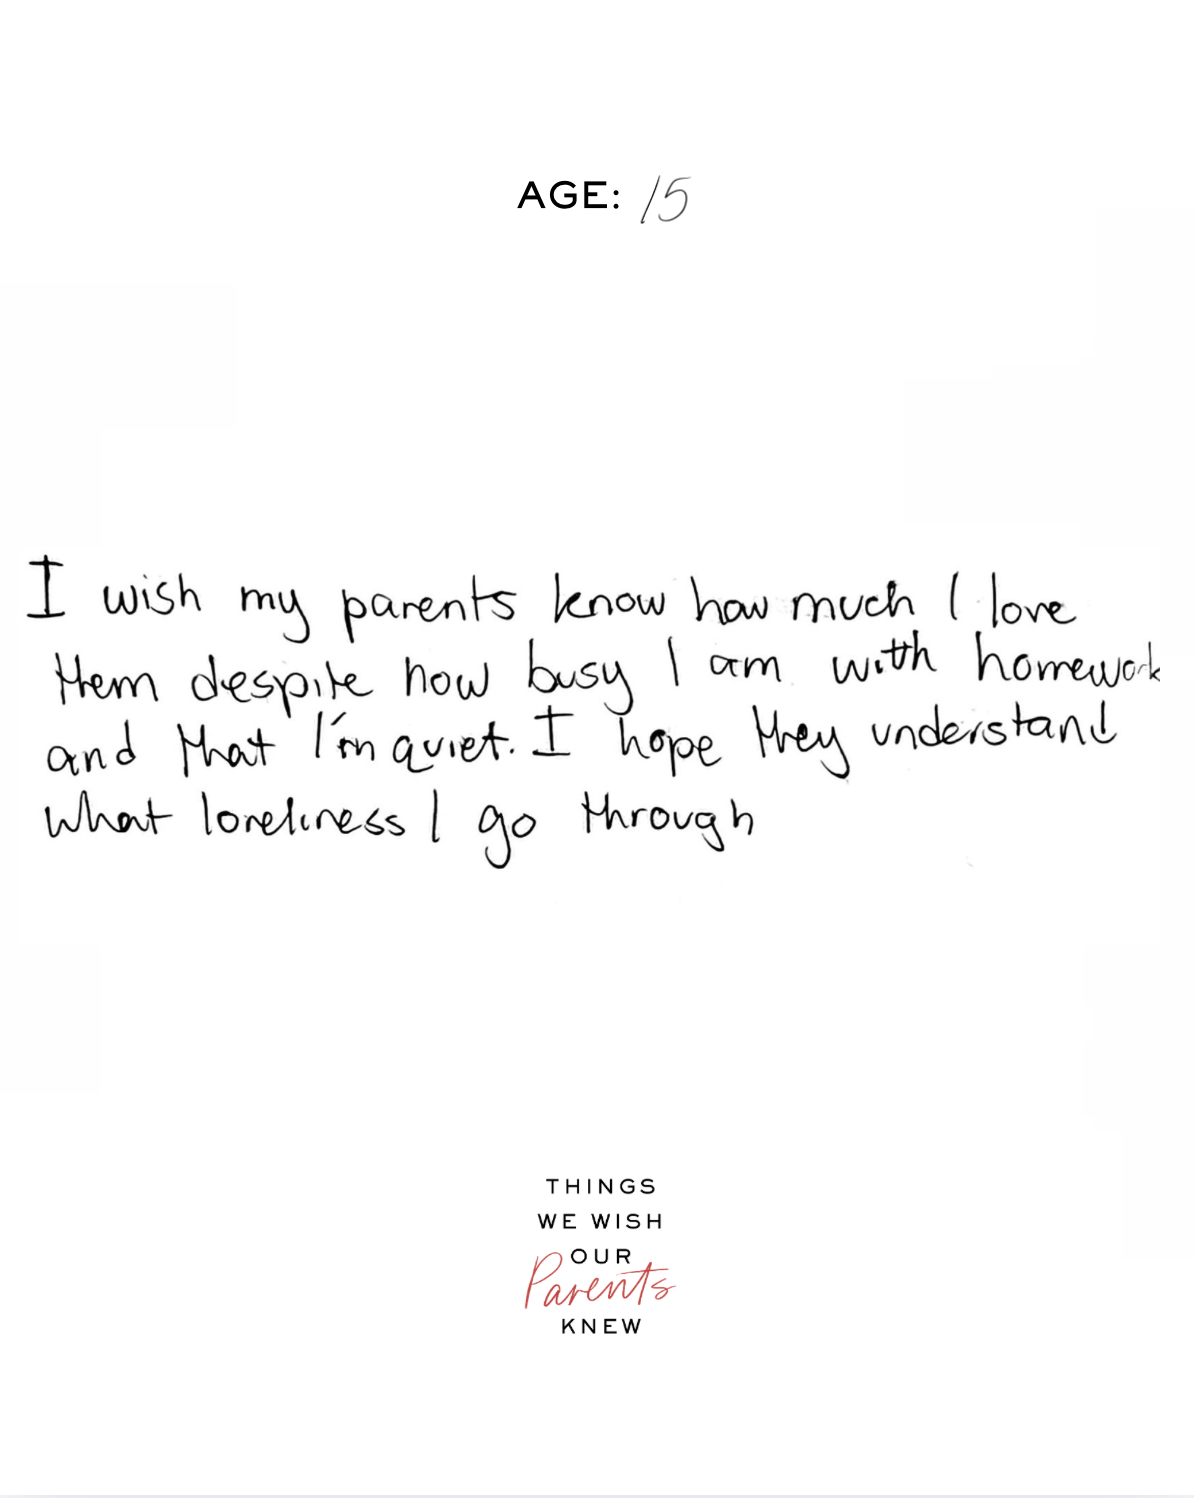 AGE: 15
I wish my parents know how much I love
them despite how busy I am with homework
and that I'm quiet. I hope they understand
what loneliness I go through
THINGS
WE WISH
OUR
Parents
KNEW